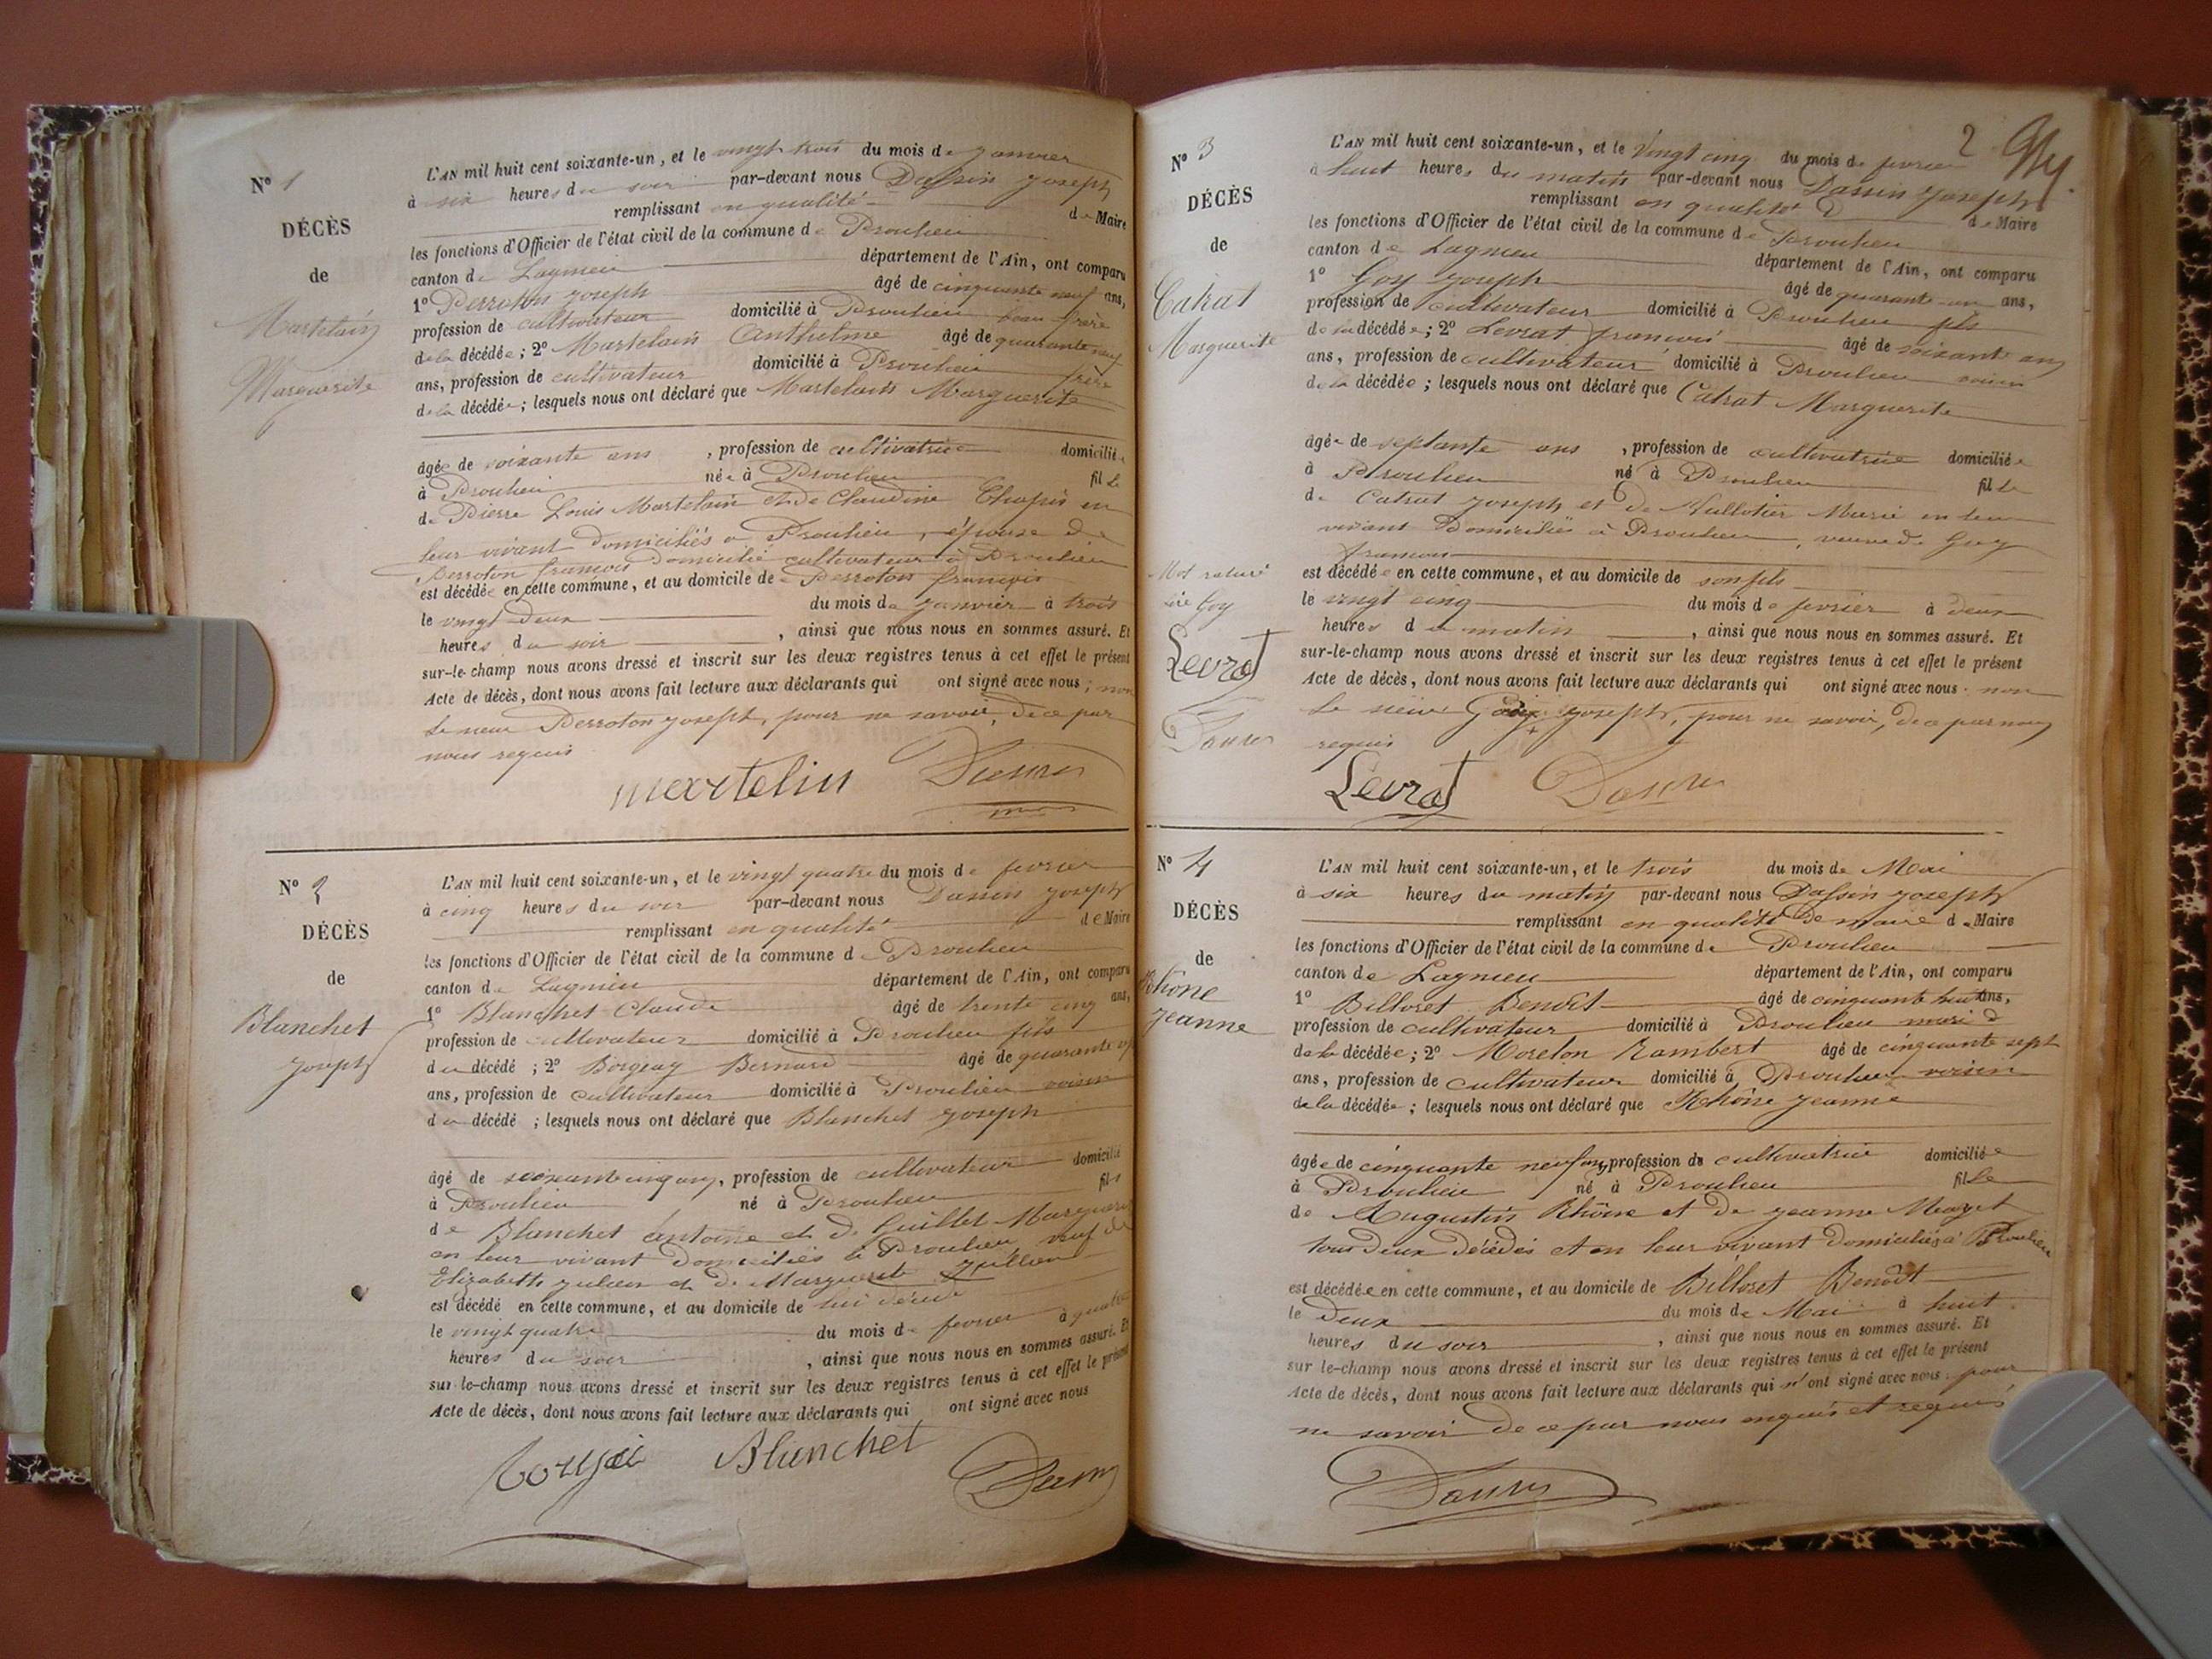 N° 1
DÉCÈS
de
Martelain
Marguerite
L'AN mil huit cent soixante-un, et le vingt trois du mois de janvier
à six heures du soir par-devant nous Dassin joseph
remplissant en qualité de Maire
les fonctions d'Officier de l'état civil de la commune de Proulieu
canton de Lagnieu département de l'Ain, ont comparu
1° Perroton joseph âgé de cinquante neuf ans,
profession de cultivateur domicilié à Proulieu beau frère
de la décédée; 2° Martelain Anthelme âgé de quarante neuf
ans, profession de cultivateur domicilié à Proulieu frère
de la décédée; lesquels nous ont déclaré que Martelain Marguerite
âgée de soixante ans, profession de cultivatrice domiciliée
à Proulieu née à Proulieu fille
de Pierre Louis Martelain et de Claudine Chapuis en
leur vivant domiciliés à Proulieu, épouse de
Perroton françois domicilié cultivateur à Proulieu
est décédée en cette commune, et au domicile de Perroton françois
le vingt deux du mois de janvier à trois
heures du soir, ainsi que nous nous en sommes assuré. Et
sur-le-champ nous avons dressé et inscrit sur les deux registres tenus à cet effet le présent
Acte de décès, dont nous avons fait lecture aux déclarants qui ont signé avec nous; non
le sieur Perroton joseph, pour ne savoir, de ce par
nous requis
martelin Dassin
N° 2
DÉCÈS
de
Blanchet
joseph
L'AN mil huit cent soixante-un, et le vingt quatre du mois de fevrier
à cinq heures du soir par-devant nous Dassin joseph
remplissant en qualité de Maire
les fonctions d'Officier de l'état civil de la commune de Proulieu
canton de Lagnieu département de l'Ain, ont comparu
1° Blanchet Claude âgé de trente cinq ans,
profession de cultivateur domicilié à Proulieu fils
du décédé; 2° Bernard âgé de quarante
ans, profession de cultivateur domicilié à Proulieu voisin
du décédé; lesquels nous ont déclaré que Blanchet joseph
âgé de soixante cinq ans, profession de cultivateur domicilié
à Proulieu né à Proulieu fils
de Blanchet antoine et de Guillet Marguerite
en leur vivant domiciliés à Proulieu, veuf de
Elizabeth julien et de Marguerite Jullien
est décédé en cette commune, et au domicile de lui décédé
le vingt quatre du mois de fevrier à quatre
heures du soir, ainsi que nous nous en sommes assuré. Et
sur-le-champ nous avons dressé et inscrit sur les deux registres tenus à cet effet le présent
Acte de décès, dont nous avons fait lecture aux déclarants qui ont signé avec nous
Blanchet Dassin
2
N° 3
DÉCÈS
de
Catrat
Marguerite
L'AN mil huit cent soixante-un, et le vingt cinq du mois de fevrier
à huit heures du matin par-devant nous Dassin joseph
remplissant en qualité de Maire
les fonctions d'Officier de l'état civil de la commune de Proulieu
canton de Lagnieu département de l'Ain, ont comparu
1° Goy joseph âgé de quarante un ans,
profession de cultivateur domicilié à Proulieu fils
de la décédée; 2° Levrat françois âgé de soixante ans
ans, profession de cultivateur domicilié à Proulieu voisin
de la décédée; lesquels nous ont déclaré que Catrat Marguerite
âgée de septante ans, profession de cultivatrice domiciliée
à Proulieu né à Proulieu fille
de Catrat joseph et de Marie en leur
vivant domiciliés à Proulieu, veuve de Goy
françois
est décédée en cette commune, et au domicile de son fils
le vingt cinq du mois de fevrier à deux
heures du matin, ainsi que nous nous en sommes assuré. Et
sur-le-champ nous avons dressé et inscrit sur les deux registres tenus à cet effet le présent
Acte de décès, dont nous avons fait lecture aux déclarants qui ont signé avec nous. non
le sieur joseph, pour ne savoir, de ce par nous
requis
Levrat Dassin
Mot raturé
lire Goy
Levrat
Dassin
N° 4
DÉCÈS
de
Rhône
jeanne
L'AN mil huit cent soixante-un, et le trois du mois de Mai
à six heures du matin par-devant nous Dassin joseph
remplissant en qualité de maire de Maire
les fonctions d'Officier de l'état civil de la commune de Proulieu
canton de Lagnieu département de l'Ain, ont comparu
1° Billoret Benoît âgé de cinquante huit ans,
profession de cultivateur domicilié à Proulieu mari
de la décédée; 2° Morelon Rambert âgé de cinquante sept
ans, profession de cultivateur domicilié à Proulieu voisin
de la décédée; lesquels nous ont déclaré que Rhône jeanne
âgée de cinquante neuf ans, profession de cultivatrice domiciliée
à Proulieu né à Proulieu fille
de Augustin Rhône et de jeanne
tous deux décédés et en leur vivant domiciliés à Proulieu
est décédée en cette commune, et au domicile de Billoret Benoît
le deux du mois de Mai à huit
heures du soir, ainsi que nous nous en sommes assuré. Et
sur le-champ nous avons dressé et inscrit sur les deux registres tenus à cet effet le présent
Acte de décès, dont nous avons fait lecture aux déclarants qui n'ont signé avec nous. pour
ne savoir de ce par nous enquis et requis
Dassin